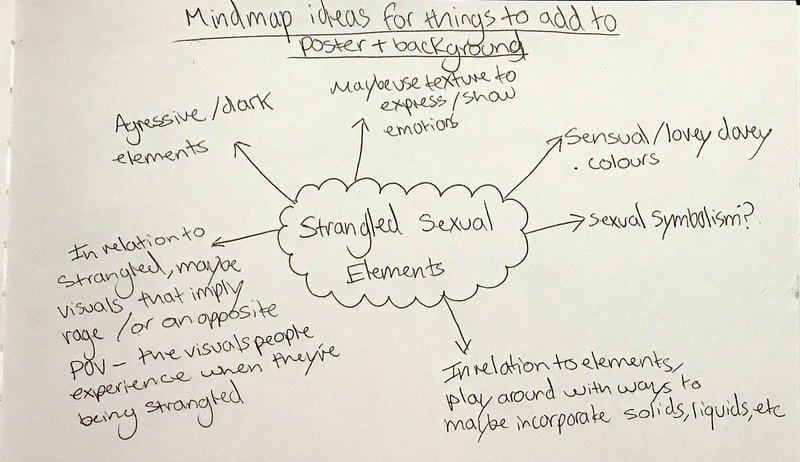 Mindmap ideas for things to add to
poster + background
Agressive/dark
elements
Maybe use texture to
express/show
emotions
Sensual/lovey dovey
. colours
Strangled Sexual
Elements
Sexual Symbolism?
In relation to
strangled, maybe
visuals that imply
rage / or an opposite
POV - the visuals people
experience when they're
being strangled
In relation to elements,
play around with ways to
maybe incorporate solids, liquids, etc